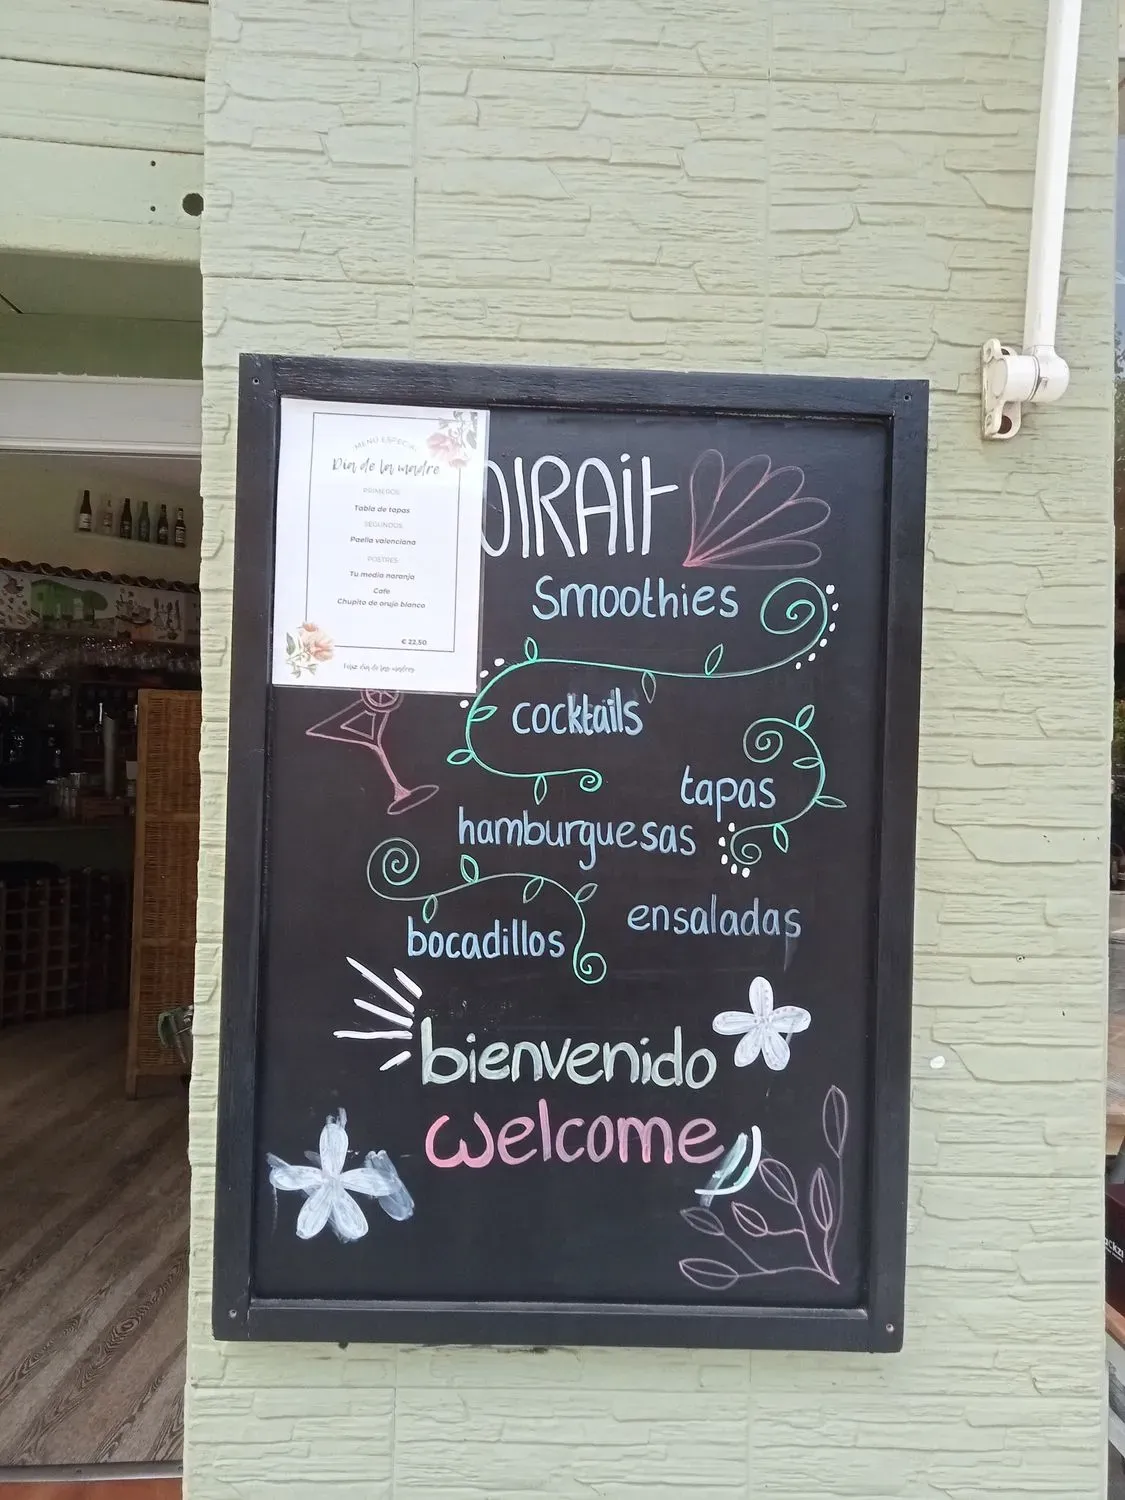 MENÚ ESPECIAL
Día de la madre
PRIMEROS
Tabla de tapas
SEGUNDOS
Paella valenciana
POSTRES
Tu media naranja
Cafe
Chupito de orujo blanco
€ 22,50
Feliz día de las madres
Smoothies
cocktails
tapas
hamburguesas
ensaladas
bocadillos
bienvenido
welcome